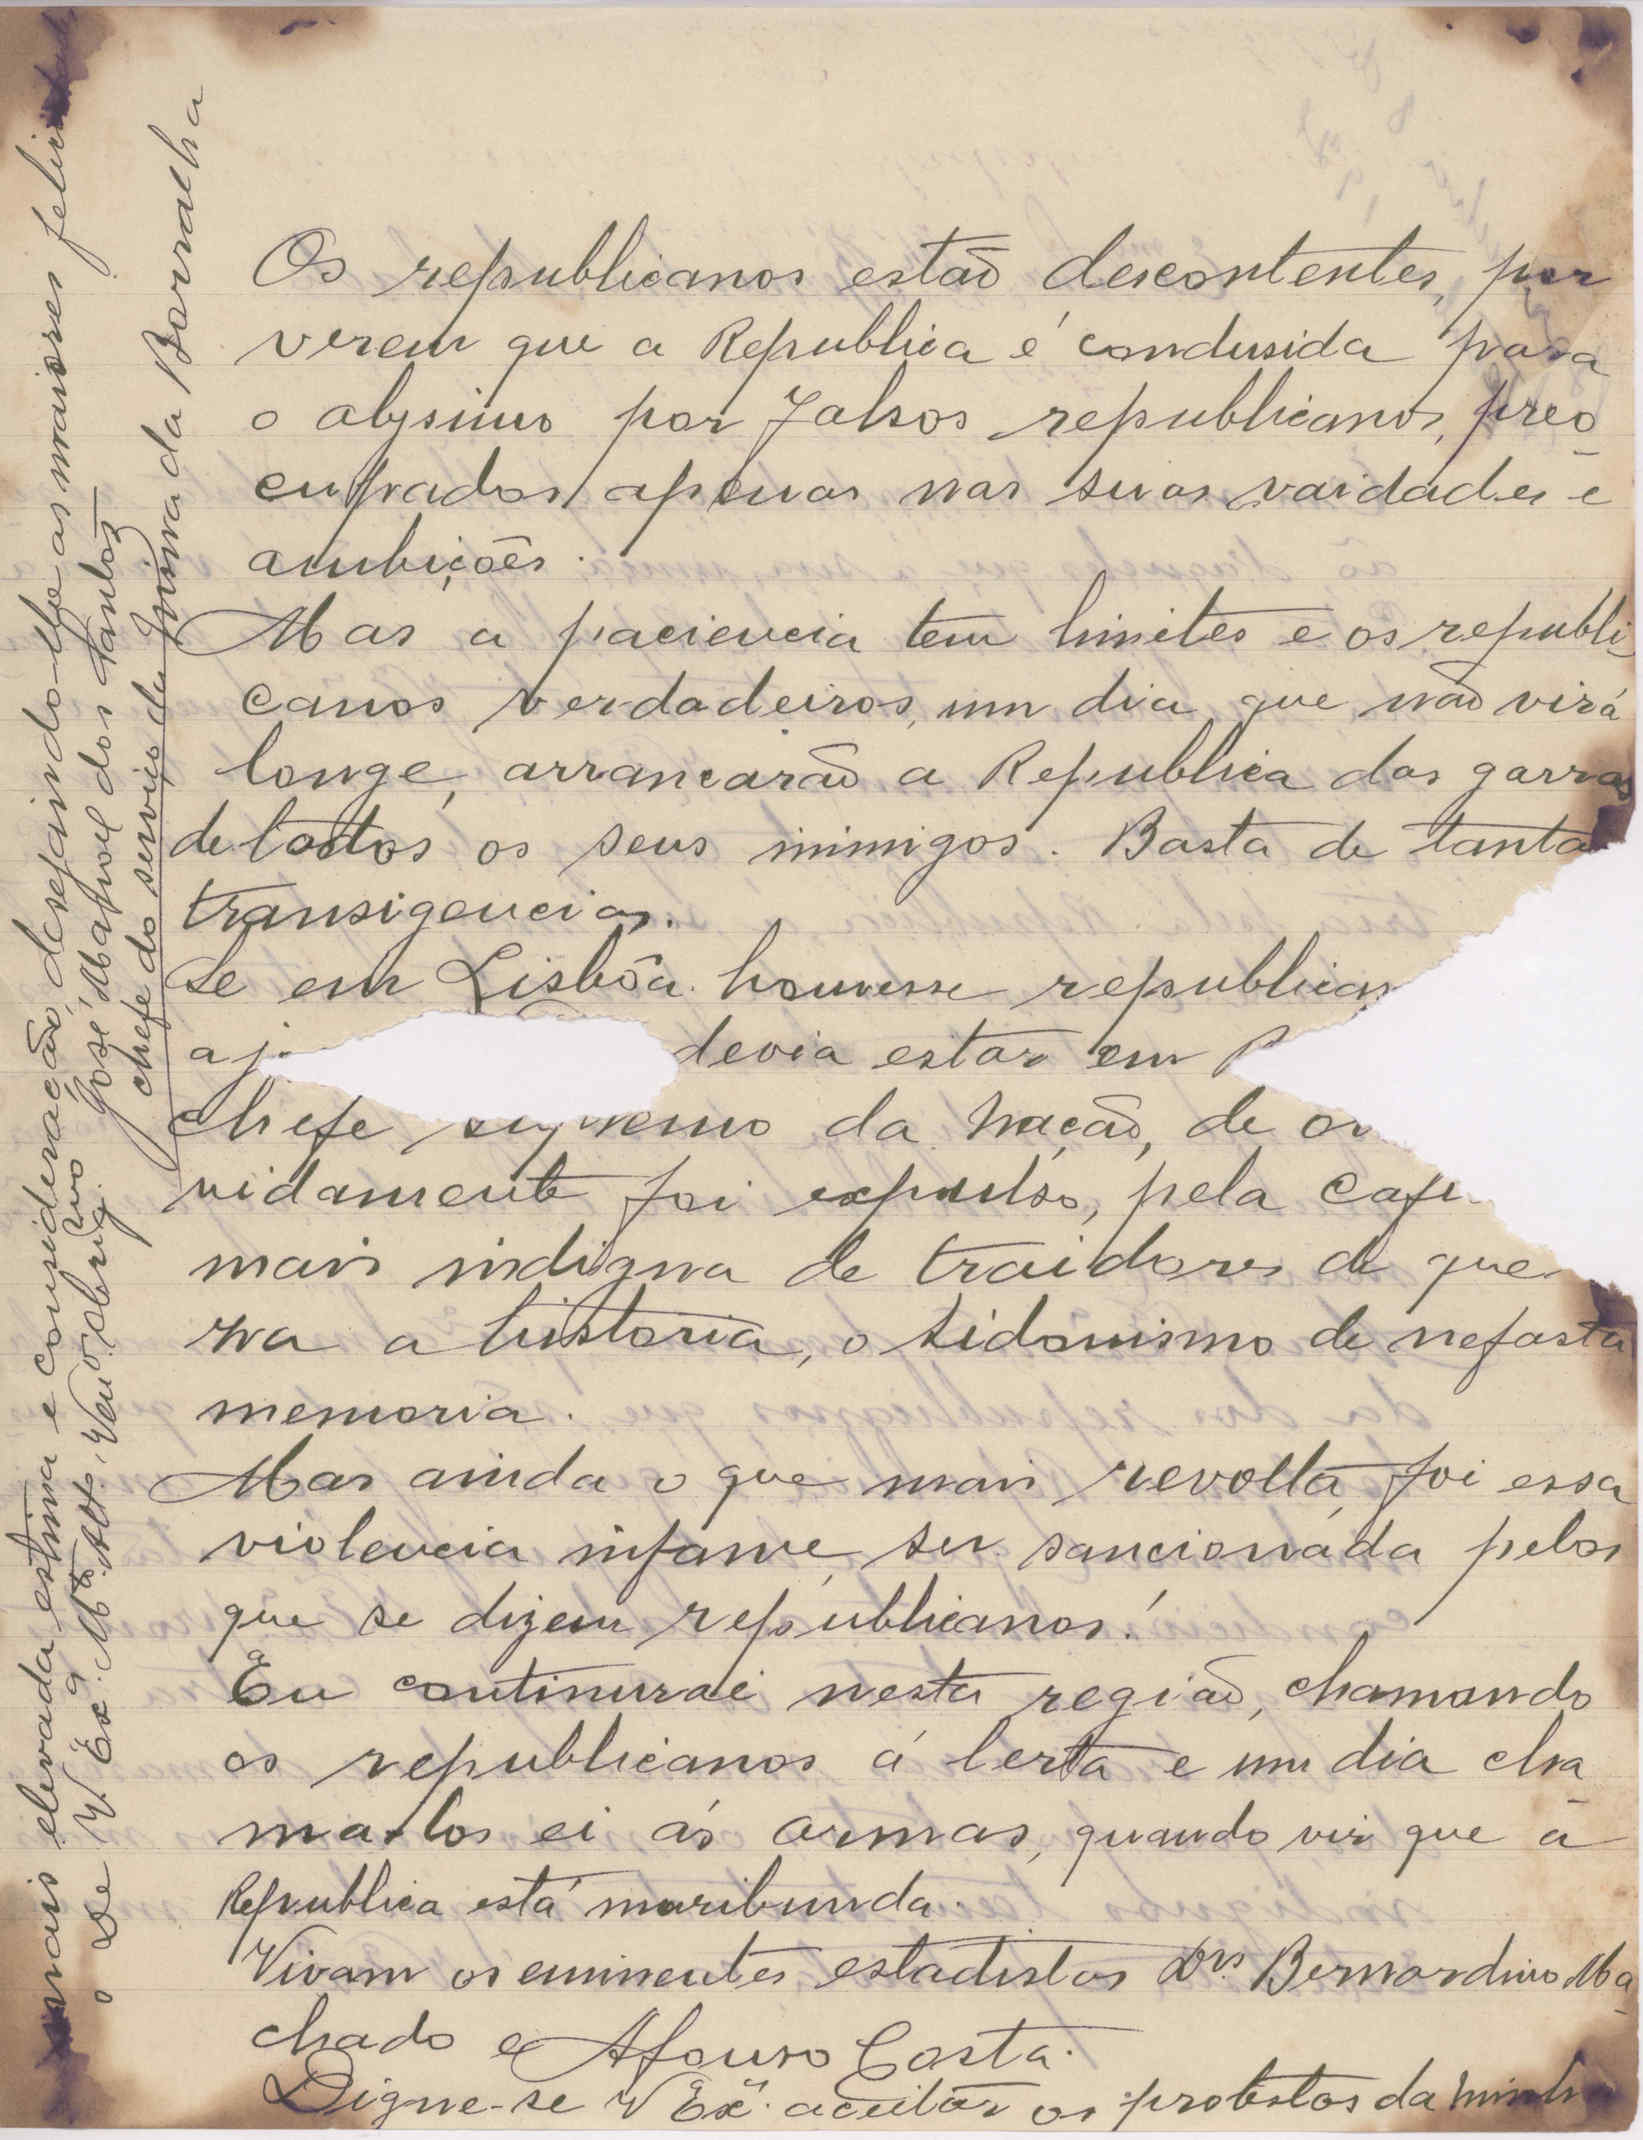 Os republicanos estão descontentes, por
verem que a Republica é condusida para
o abysmo por falsos republicanos, preo-
cupados apenas nas suas vaidades e
ambições.
Mas a paciencia tem limites e os republi-
canos verdadeiros, um dia que não virá
longe, arrancarão a Republica das garras
de todos os seus inimigos. Basta de tanta
transigencia.
Se em Lisbôa houvesse
devia estar em
chefe supremo da Nação, de
vidamente foi expulso, pela
mais indigna de traidores de que
a historia, o sidonismo de nefasta
memoria.
Mas ainda o que mais revolta, foi essa
violencia infame, ser sancionada pelos
que se dizem republicanos!
Eu continurai nesta região, chamando
os republicanos á lerta e um dia cha-
ma-los ei ás armas, quando vir que a
Republica está moribunda.
Vivam os eminentes estadistas Drs Bernardino Ma-
chado e Afonso Costa.
Digne-se V. Exª. aceitar os protestos da minha
mais elevada estima e consideração, desejando-lhe as maiores
o De V. Exª. Mto. Atto. Venor. e Obrigmo
José Manuel dos Santos
chefe do serviço da Mina da Borralha